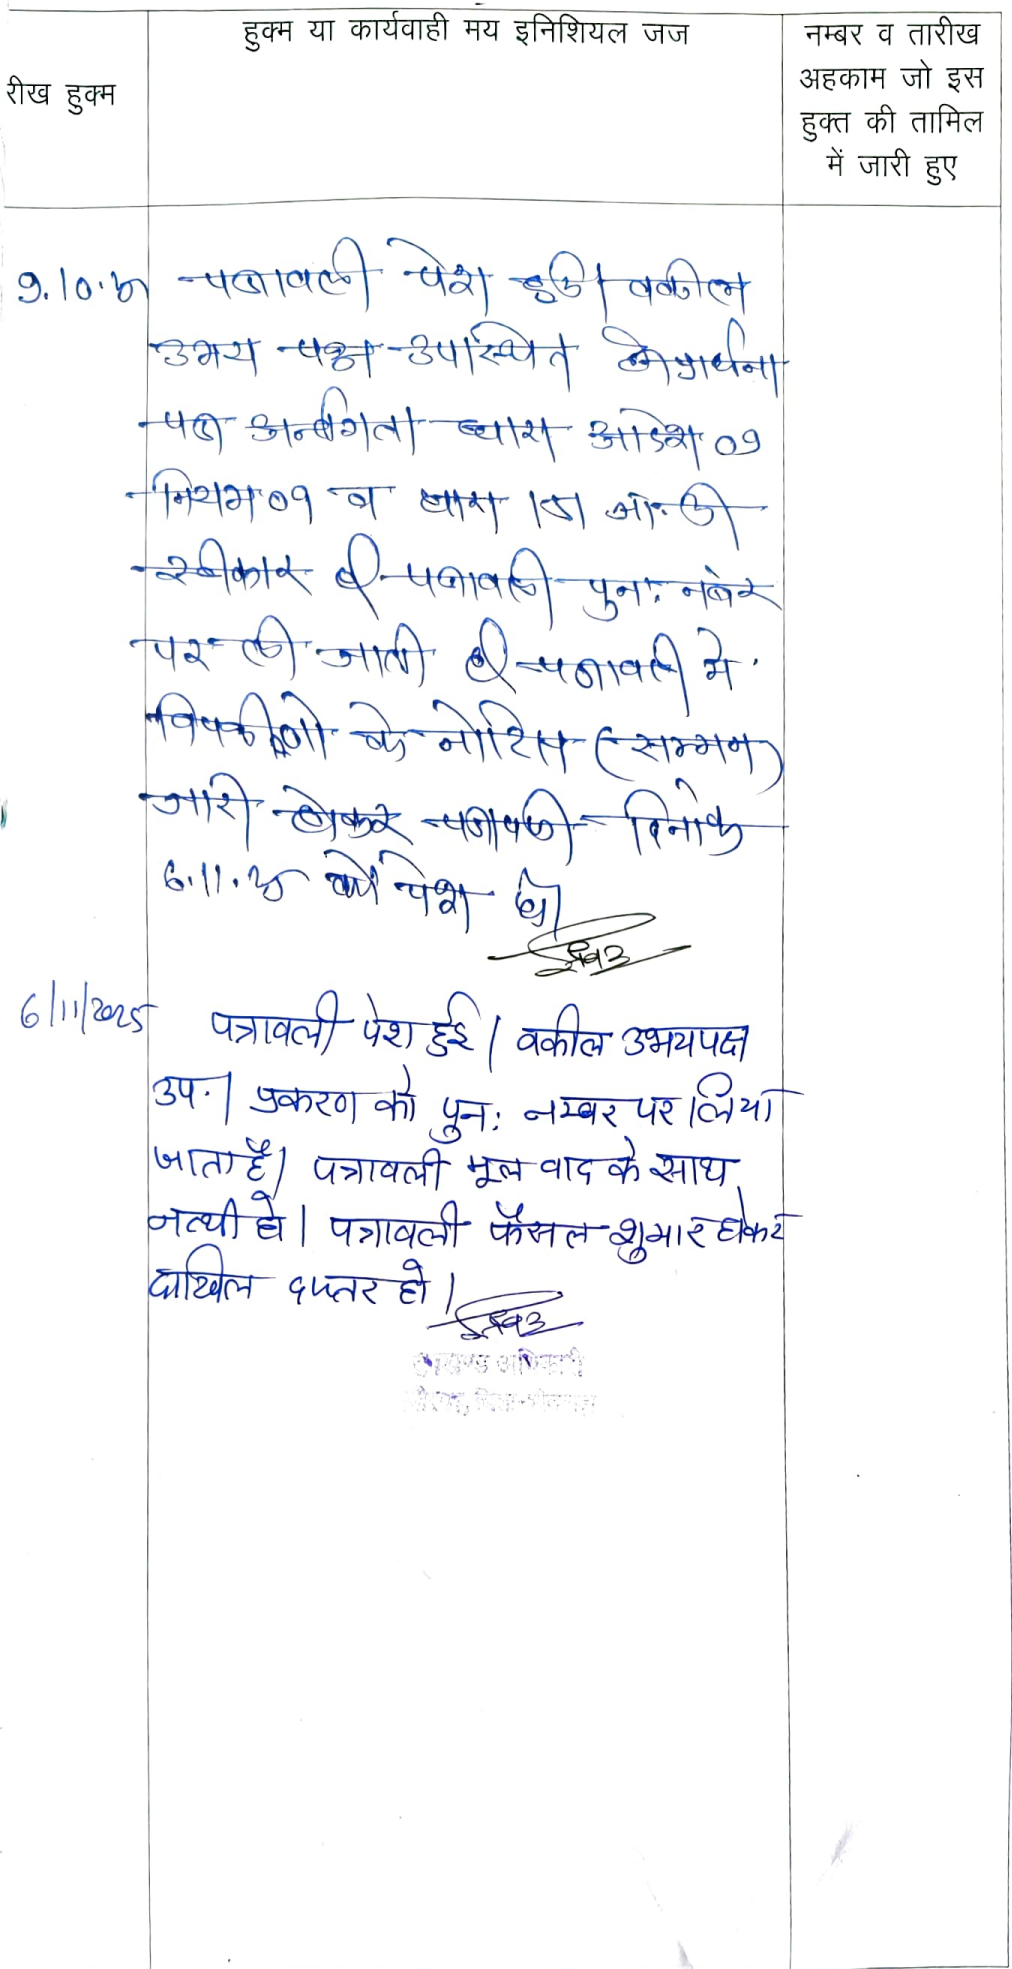 हुक्म या कार्यवाही मय इनिशियल जज
नम्बर व तारीख
अहकाम जो इस
हुक्त की तामिल
में जारी हुए
रीख हुक्म
9.10.25 पत्रावली पेश हुई। वकील
उभय पक्ष उपस्थित प्रार्थना
पत्र अन्तर्गत धारा आदेश 09
नियम 09 व धारा 151
स्वीकार है पत्रावली पुनः नंबर
पर ली जाती है पत्रावली मे
के नोटिस (सम्मन)
जारी होकर पत्रावली दिनांक
6.11.25 को पेश हो
6/11/2025 पत्रावली पेश हुई। वकील उभयपक्ष
उप.। प्रकरण को पुनः नम्बर पर लिया
जाता है। पत्रावली मूल वाद के साथ
नत्थी हो। पत्रावली फैसल शुमार होकर
दाखिल दफ्तर हो।
अधिकारी